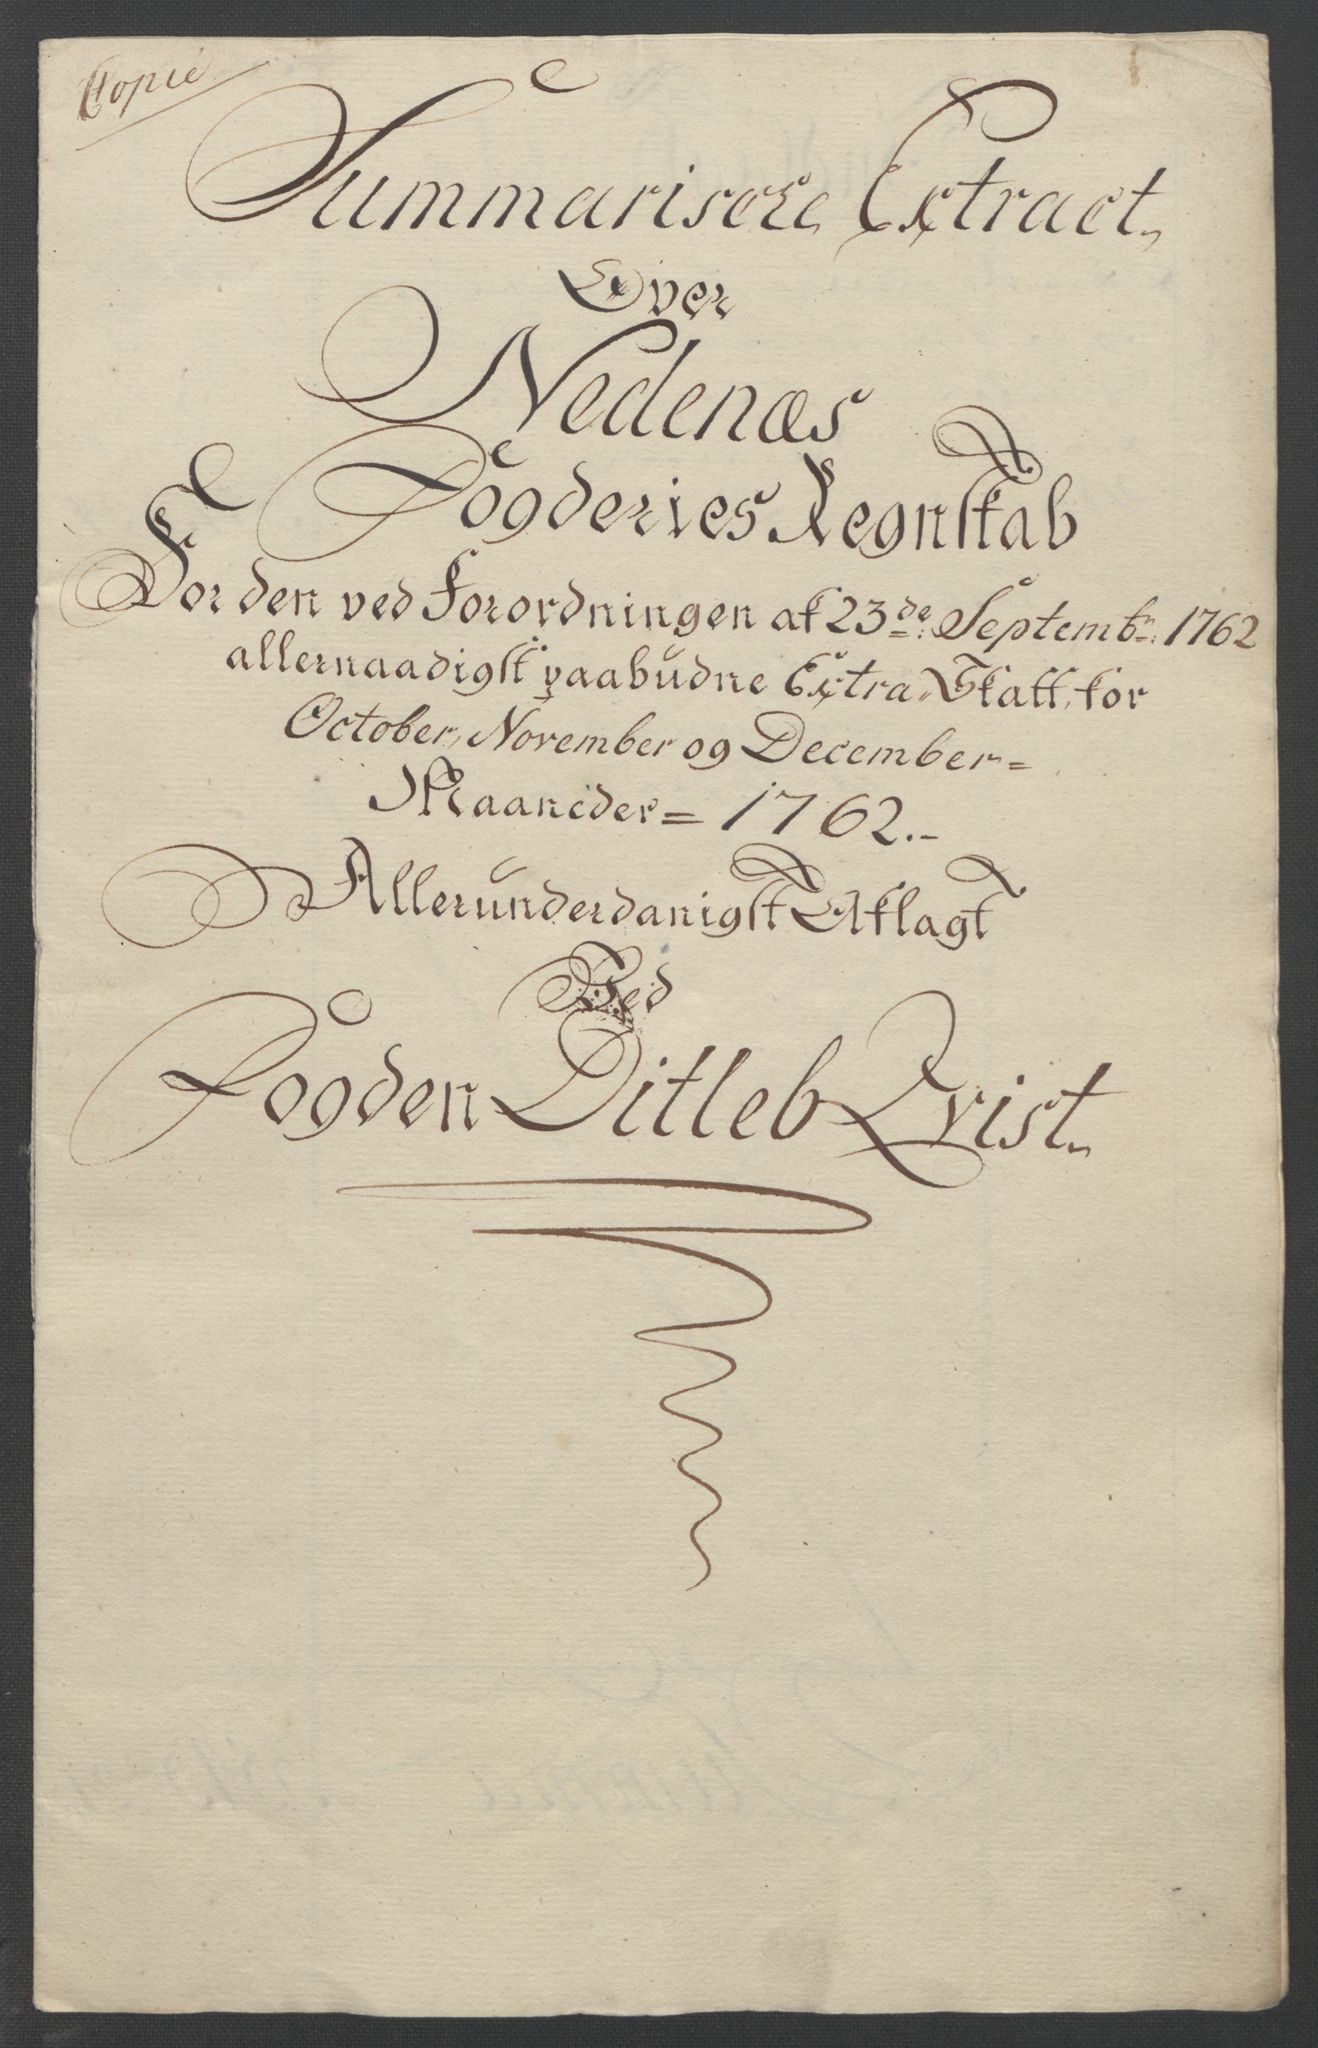 Copie
Summariscke Extract
Over
Nedenæs
Fogderies Regnskab
For den ved Forordningen af 23de Septembr: 1762
allernaadigst paabudne Extra-Skatt, for
October, November og December=
Maaneder= 1762.-
Allerunderdanigst Aflagt
Ved
Fogden Ditleb Qvist